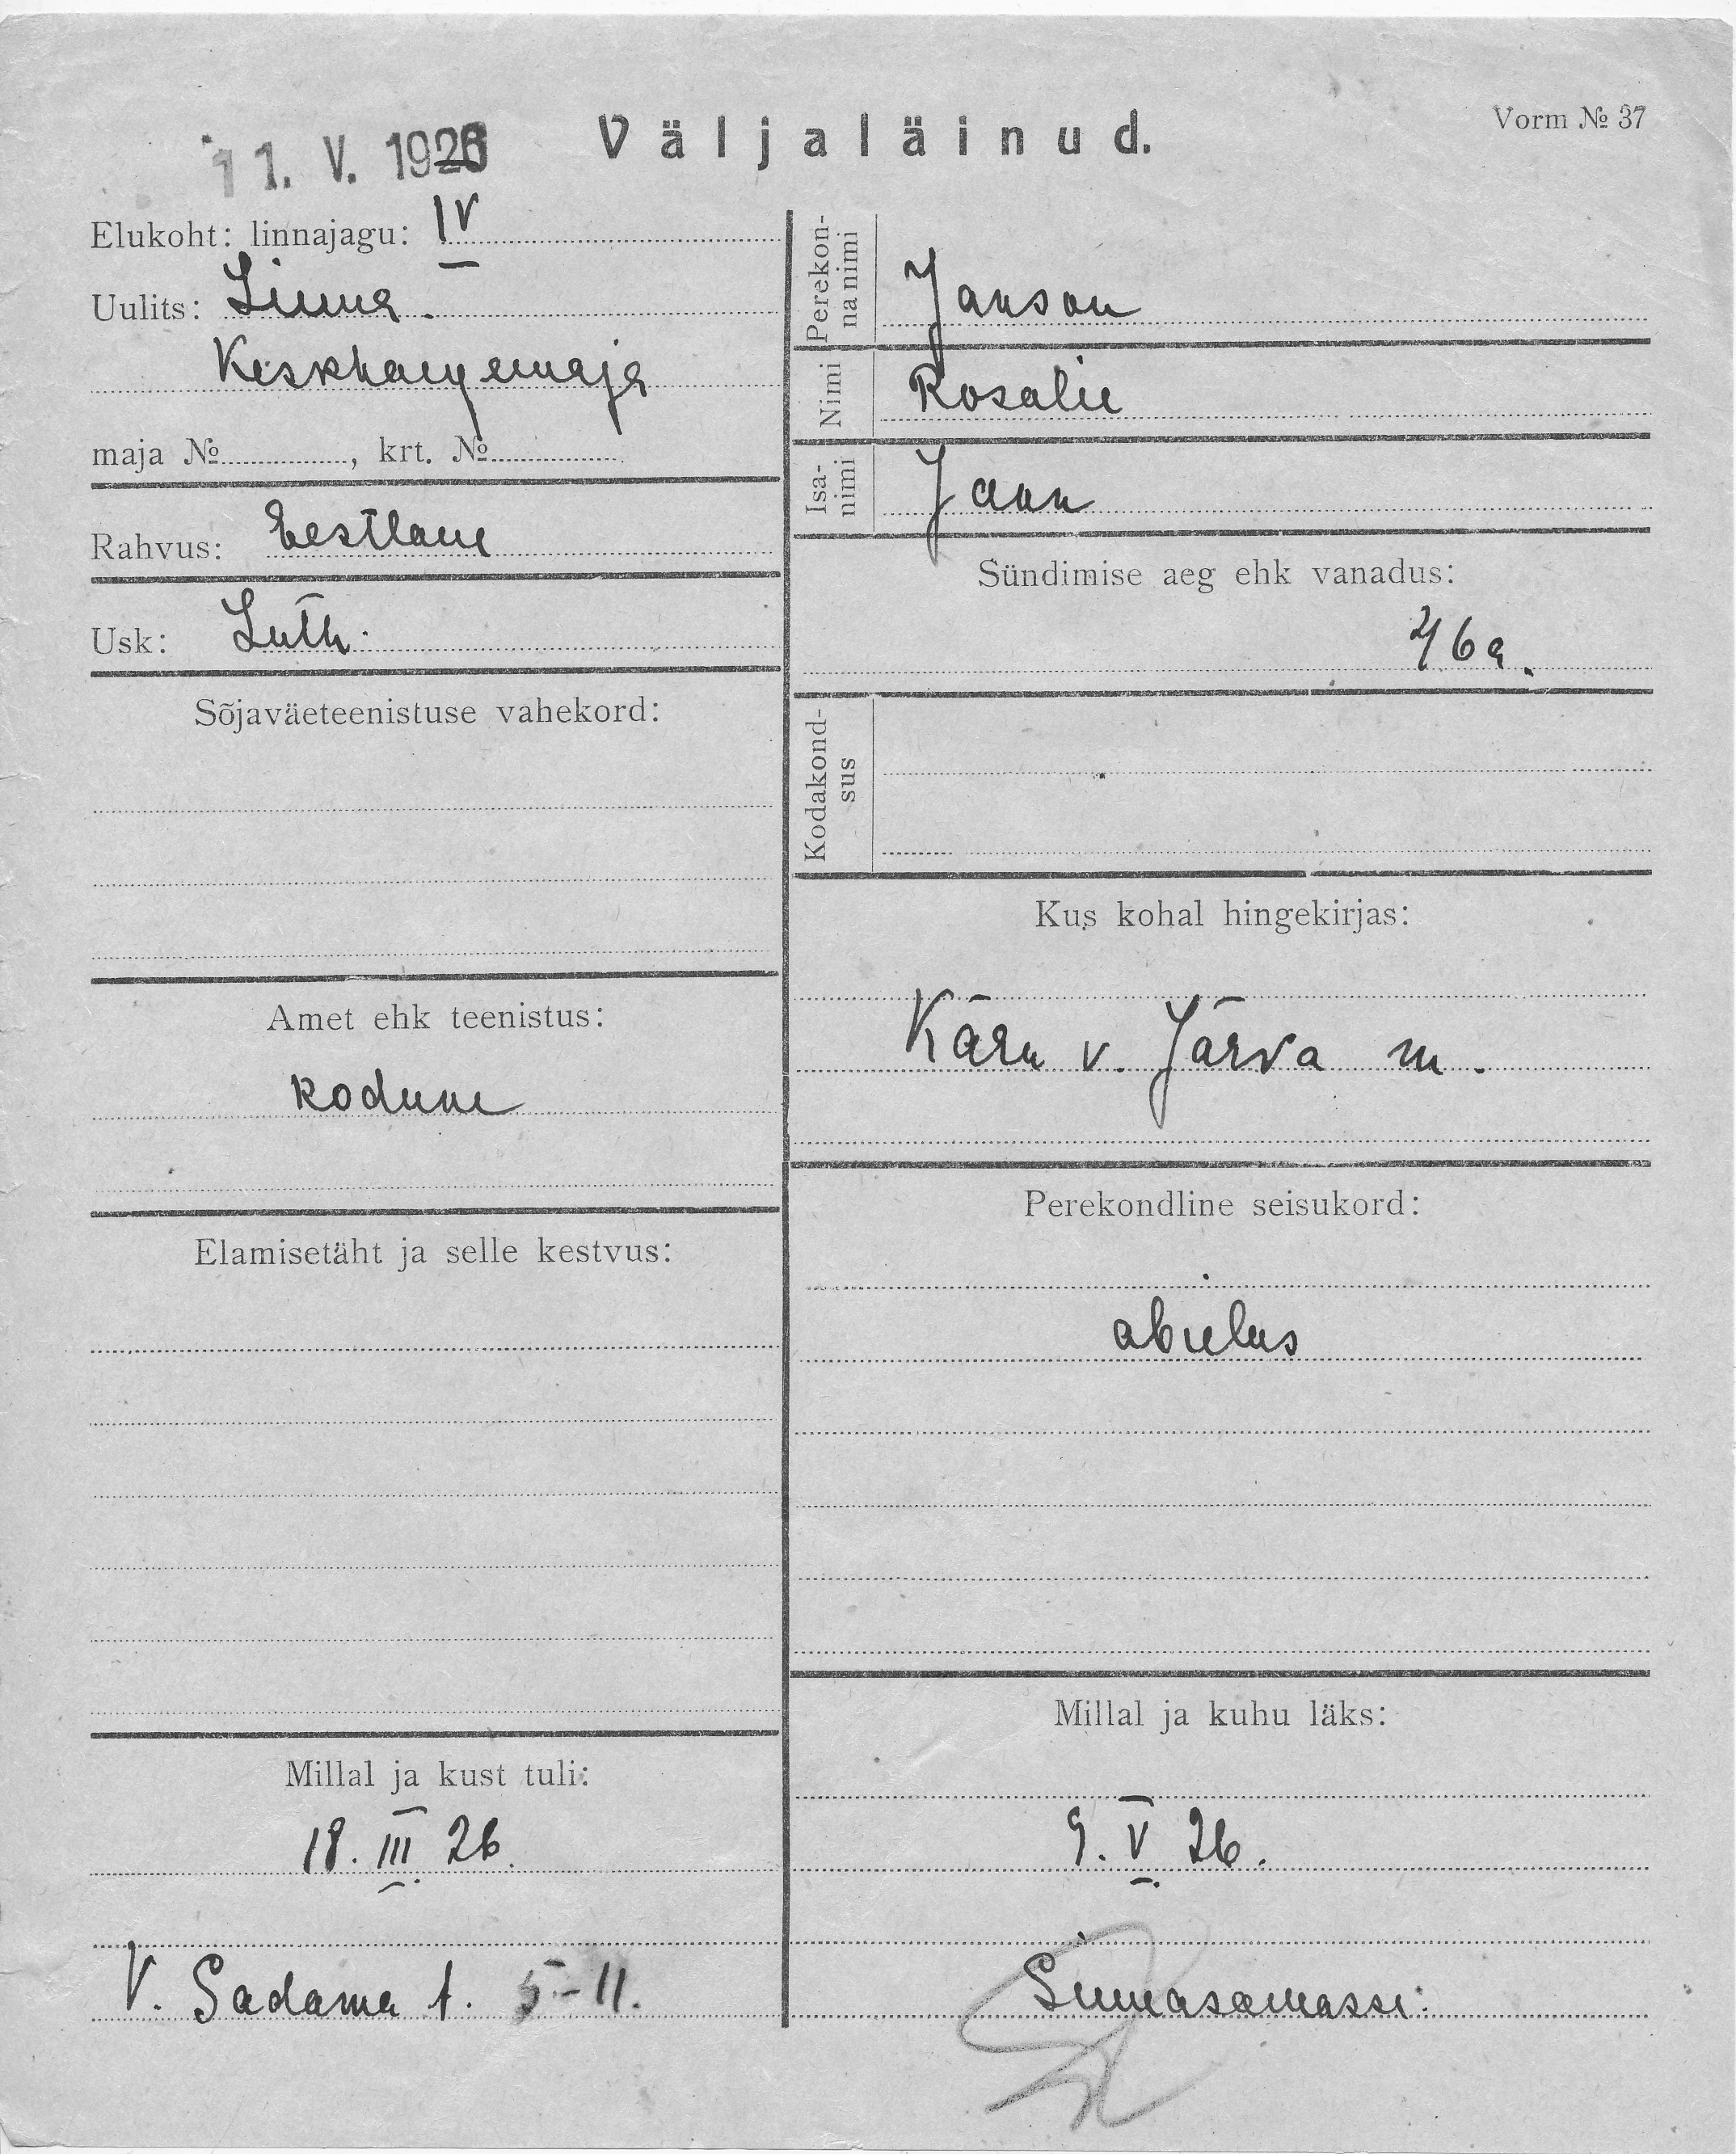 11. V. 1926
Väljaläinud.
Vorm № 37
Elukoht: linnajagu: IV
Uulits: Linna.
Keskhangemaja
maja № , krt. №
Rahvus: Eestlane
Usk: Luth.
Sõjaväeteenistuse vahekord:
Amet ehk teenistus:
kodune
Elamisetäht ja selle kestvus:
Millal ja kust tuli:
18. III 26.
V. Sadama t. 5-11.
Perekon-
na nimi
Janson
Nimi Rosalie
Isa-
nimi
Jaan
Sündimise aeg ehk vanadus:
46 a.
Kodakond-
sus
Kus kohal hingekirjas:
Käru v. Järva m.
Perekondline seisukord:
abielus
Millal ja kuhu läks:
9. V 26.
Sinnasamasse.